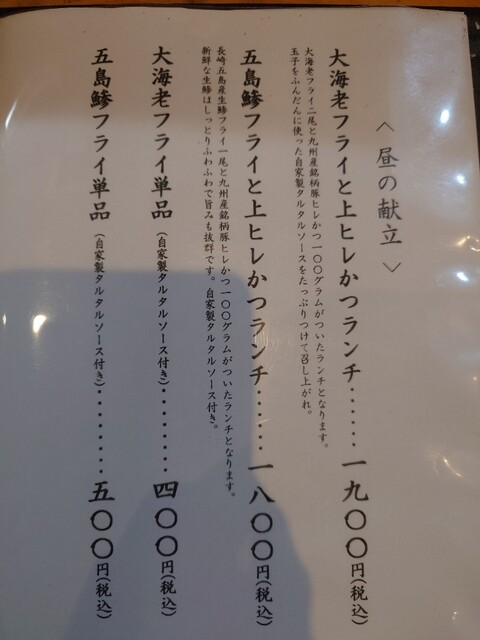 〈 昼の献立 〉
大海老フライと上ヒレかつランチ・・・・・・一九〇〇円(税込)
大海老フライ二尾と九州産銘柄豚ヒレかつ一〇〇グラムがついたランチとなります。
玉子をふんだんに使った自家製タルタルソースをたっぷりつけて召し上がれ。
五島鯵フライと上ヒレかつランチ・・・・・・一八〇〇円(税込)
長崎五島産生鯵フライ一尾と九州産銘柄豚ヒレかつ一〇〇グラムがついたランチとなります。
新鮮な生鯵はしっとりふわふわで旨みも抜群です。自家製タルタルソース付き。
大海老フライ単品(自家製タルタルソース付き)・・・・・・・・四〇〇円(税込)
五島鯵フライ単品(自家製タルタルソース付き)・・・・・・・・五〇〇円(税込)